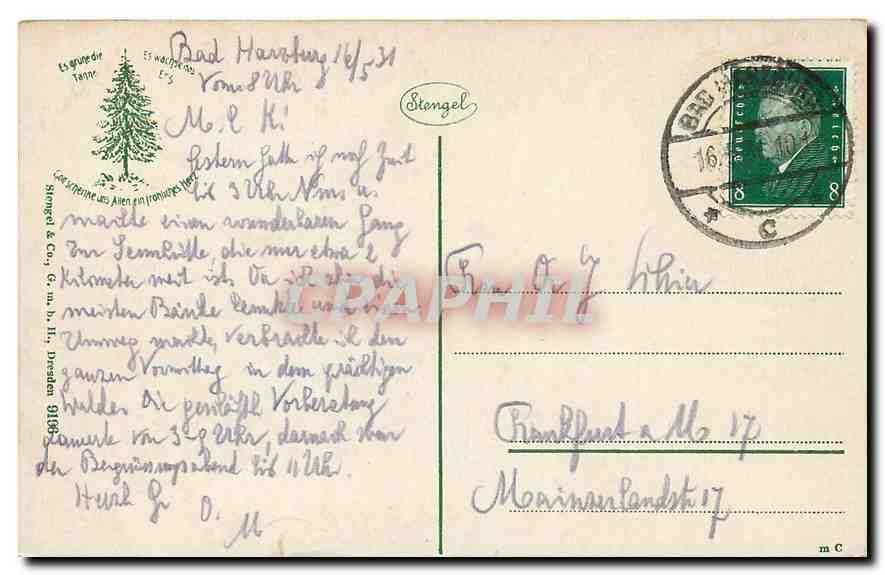 Es grüne die
Tanne
Es wachse das
Erz
Gott schenke uns Allen ein fröhliches Herz
Bad Harzburg 16/5 31
Vorm 8 Uhr
M. l.
Gestern hatte ich noch Zeit
bis 3 Uhr Nms u.
machte einen wunderbaren Gang
zur Sennhütte, die nur etwa 2
Kilometer weit ist. Da ich aber die
meisten Bänke
Umweg machte, verbrachte ich den
ganzen Vormittag in dem prächtigen
Walde. Die geschäftl Vorberatung
dauerte von 3-9 Uhr, darnach war
der Begrüssungsabend bis 11 Uhr.
Herzl Gr
O.
M
Stengel & Co., G. m. b. H., Dresden 9196
Stengel
BAD HARZBURG
16.
10
* C
Deutsches Reich
8 8
CPAPHIL
Frau
Frankfurt a M 17
Mainzerlandstr 17
m C